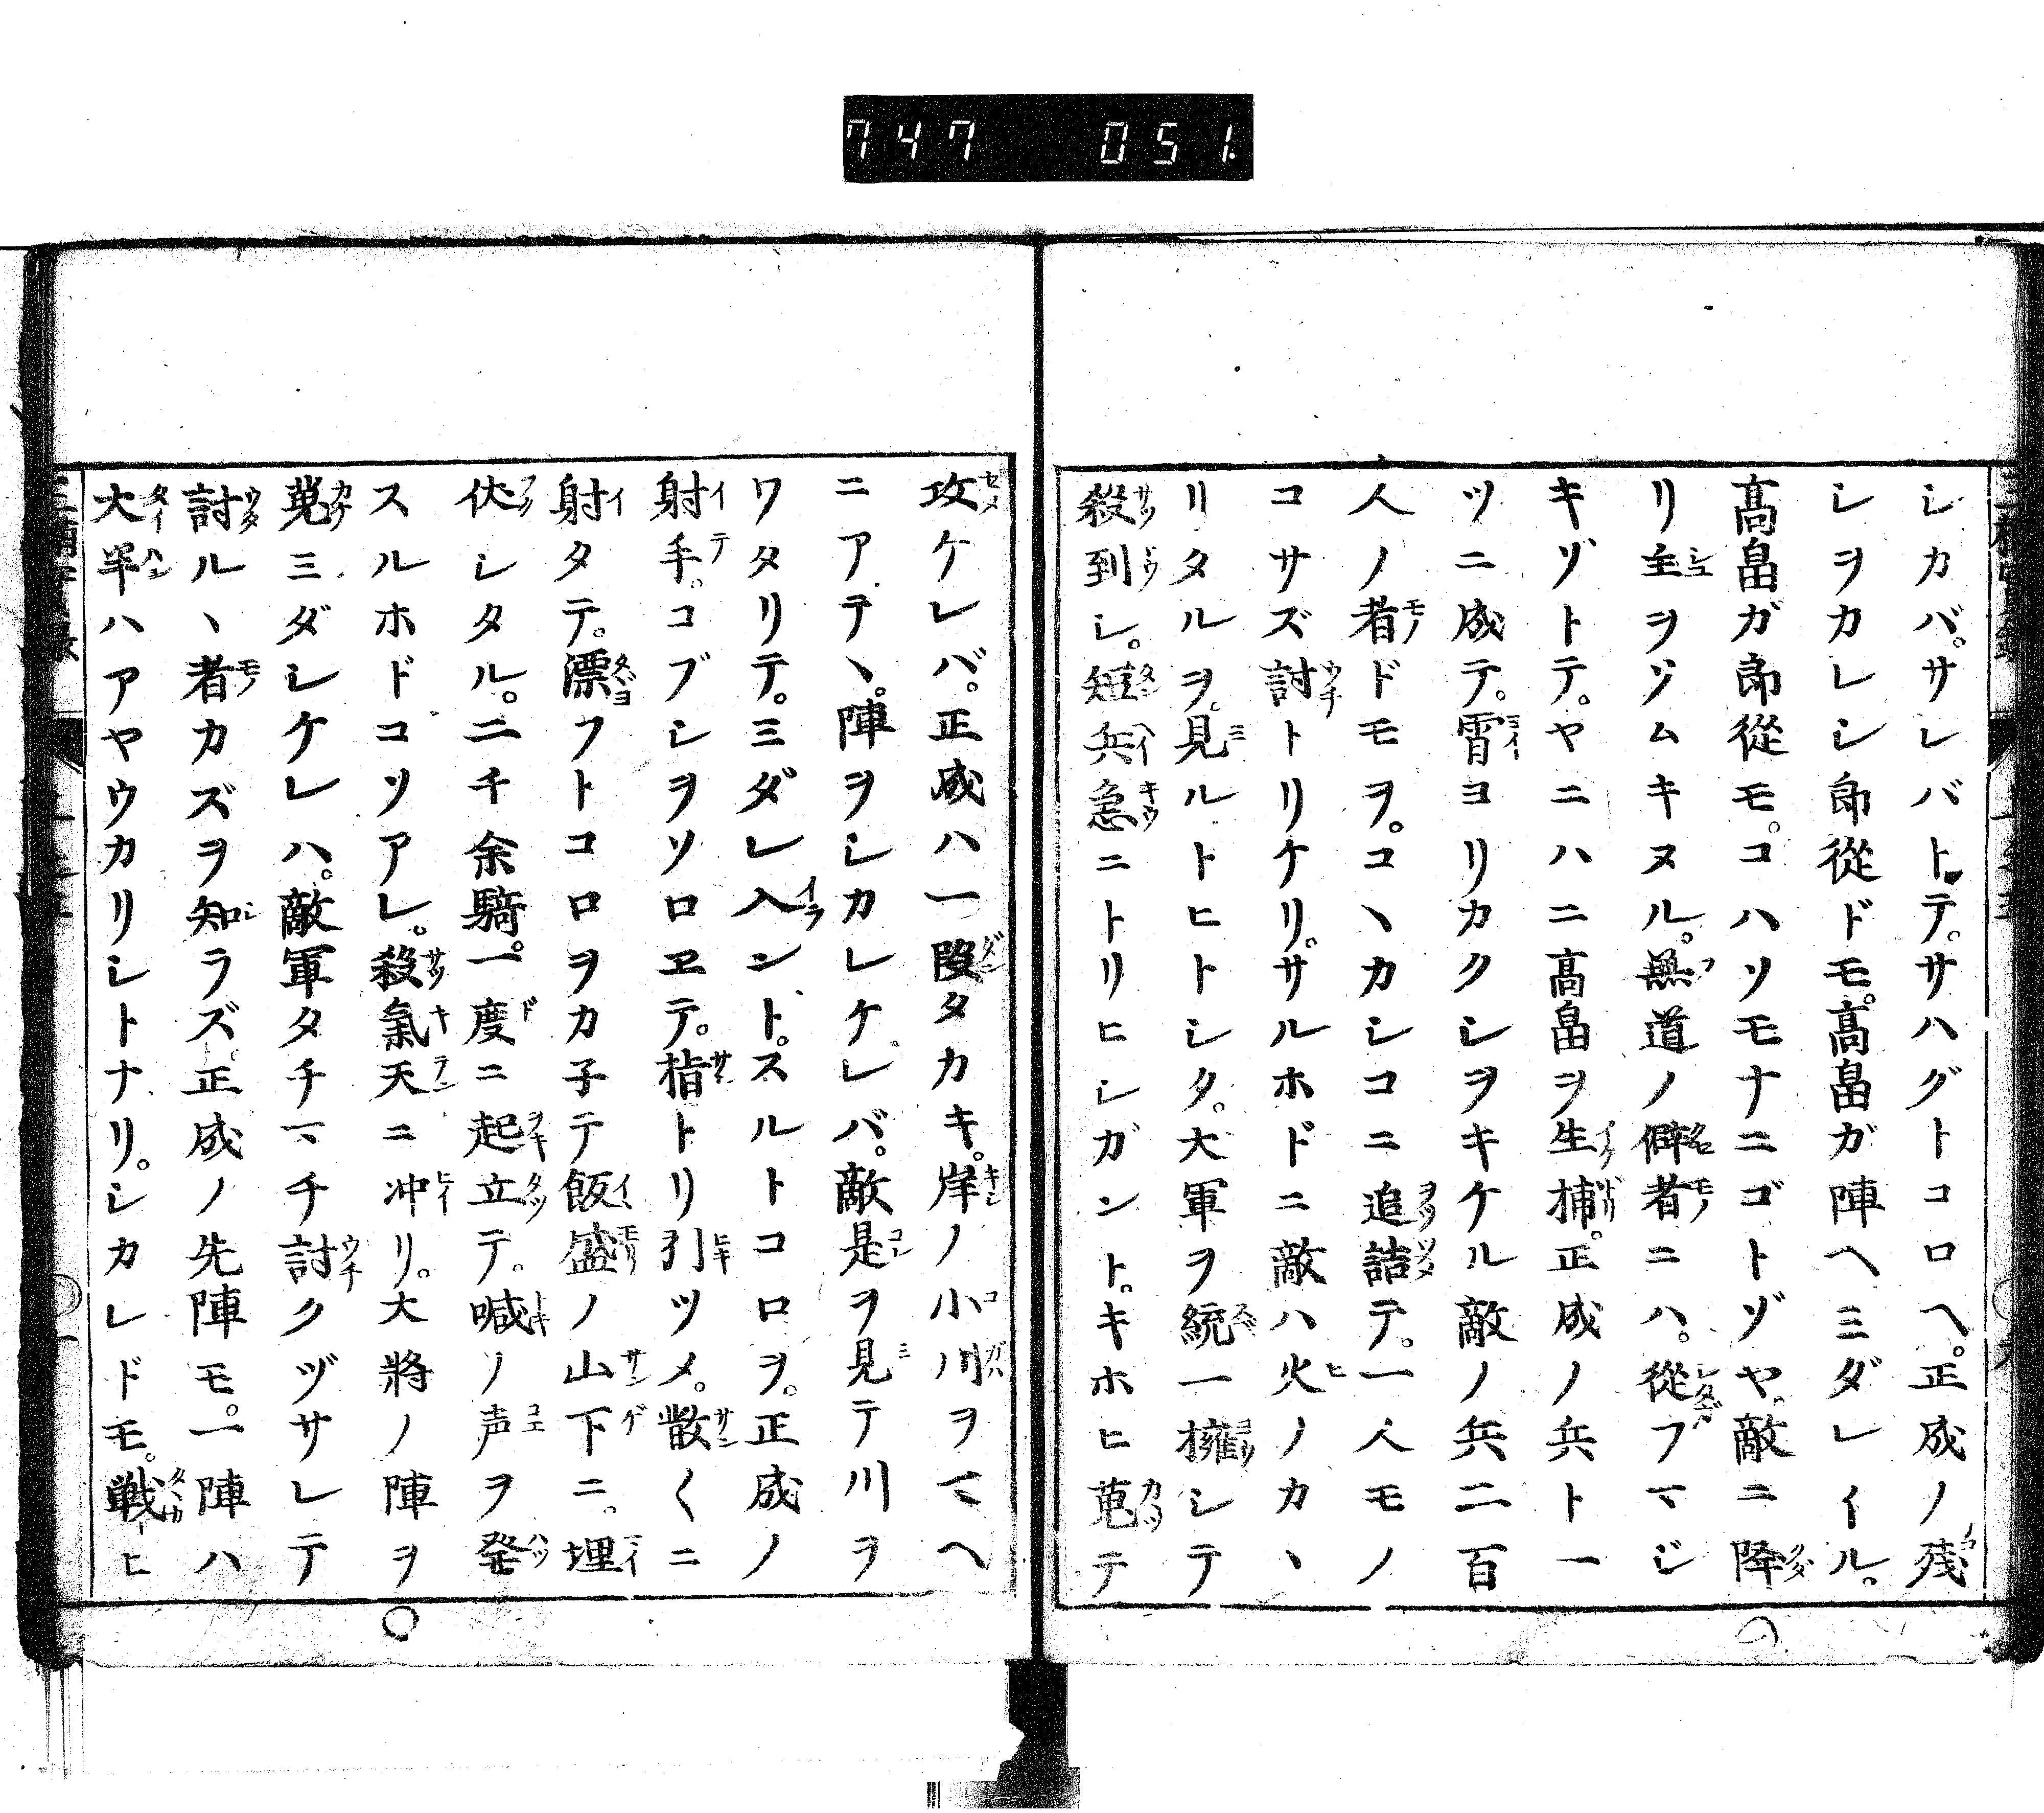 747 051.
シカバ。サレバトテ。サハグトコロヘ。正成ノ残
シヲカレシ郎從ドモ。髙畠ガ陣ヘミダレイル。
髙畠ガ郎從モ。コハソモナニゴトゾヤ。敵ニ降
リ主ヲソムキヌル。無道ノ僻者ニハ。從フマジ
キゾトテ。ヤニハニ髙畠ヲ生捕。正成ノ兵ト一
ツニ成テ。宵ヨリカクシヲキケル敵ノ兵二百
人ノ者ドモヲ。コヽカシコニ追詰テ。一人モノ
コサズ討トリケリ。サルホドニ敵ハ火ノカヽ
リタルヲ。見ルトヒトシタ。大軍ヲ統一擁シテ
殺到シ。短兵急ニトリヒシガント。キホヒ
テ
攻ケレバ。正成ハ一段タカキ。岸ノ小川ヲマヘ
ニアテヽ。陣ヲシカレケレバ。敵是ヲ見テ川ヲ
ワタリテ。ミダレ入ント。スルトコロヲ。正成ノ
射手。コブシヲソロヱテ。指トリ引ツメ。散〱ニ
射タテ。漂フトコロヲカ子テ飯盛ノ山下ニ。埋
伏シタル。二千余騎。一度ニ起立テ。喊ノ声ヲ発
スルホドコソアレ。殺氣天ニ冲リ。大將ノ陣ヲ
ミダシケレハ。敵軍タチマチ討クヅサレテ
討ルヽ者カズヲ知ラズ。正成ノ先陣モ。一陣ハ
大半ハアヤウカリシトナリ。シカレドモ。戦ヒ